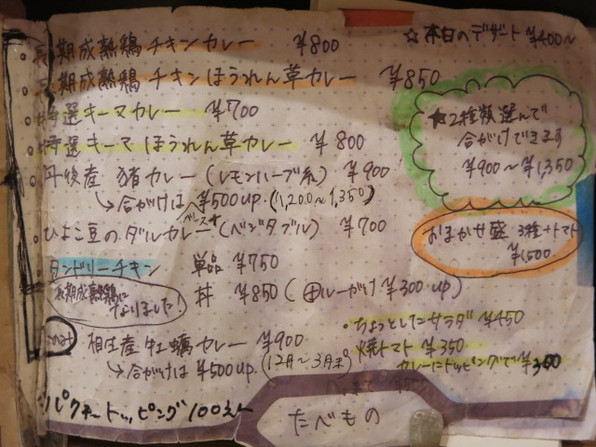 長期成熟鶏チキンカレー ¥800
長期成熟鶏チキンほうれん草カレー ¥850
特選キーマカレー ¥700
特選キーマほうれん草カレー ¥800
丹後産 猪カレー(レモンハーブ系) ¥900
→合がけは ¥500up.(1,200〜1,350)
ひよこ豆のダルカレー(ベジタブル) ¥700
タンドリーチキン 単品 ¥750
長期成熟鶏に
なりました!
丼 ¥850(⊕ルーがけ¥300up)
相生産 牡蠣カレー ¥900
→合がけは¥500up.(12月〜3月末)
パクチートッピング100えん
☆本日のデザート ¥400〜
★2種類選んで
合がけできます
¥900〜¥1,350
おまかせ盛 3種+トマト
¥1,500
・ちょっとしたサラダ ¥450
焼トマト ¥350
カレーにトッピングで¥300
たべもの